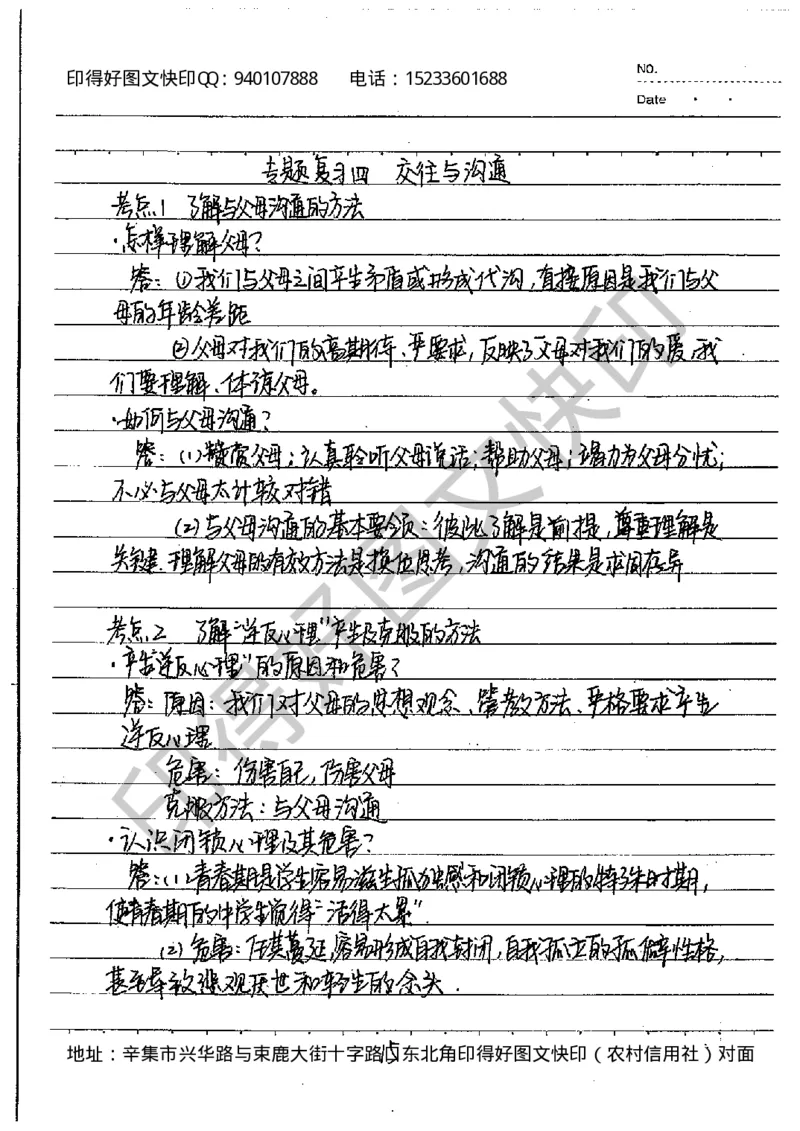 印得好图文快印QQ：940107888 电话：15233601688
NO.
Date
专题复习四 交往与沟通
考点1 了解与父母沟通的方法
·怎样理解父母？
答：①我们与父母之间产生矛盾或形成代沟，直接原因是我们与父
母的年龄差距
②父母对我们的高期待、严要求，反映了父母对我们的爱，我
们要理解、体谅父母。
·如何与父母沟通？
答：(1)赞赏父母；认真聆听父母说话；帮助父母；竭力为父母分忧；
不必与父母太计较对错
(2)与父母沟通的基本要领：彼此了解是前提，尊重理解是
关键．理解父母的有效方法是换位思考，沟通的结果是求同存异
考点2 了解“逆反心理”产生及克服的方法
·产生逆反心理”的原因和危害？
答：原因：我们对父母的思想观念、管教方法、严格要求产生
逆反心理
危害：伤害自己，伤害父母
克服方法：与父母沟通
·认识闭锁心理及其危害？
答：(1)青春期是学生容易滋生孤独感和闭锁心理的特殊时期，
使青春期的中学生觉得“活得太累”．
(2)危害：任其蔓延，容易形成自我封闭，自我孤立的孤僻性格，
甚至导致悲观厌世和轻生的念头．
15
地址：辛集市兴华路与束鹿大街十字路口东北角印得好图文快印（农村信用社）对面
印得好图文快印